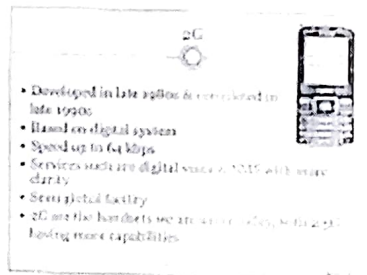 2G
• Developed in late 1980s & completed in
late 1990s
• Based on digital system
• Speed up to 64 kbps
• Services such are digital voice & SMS with more
clarity
• Semi global facility
• 2G are the handsets we are
having more capabilities